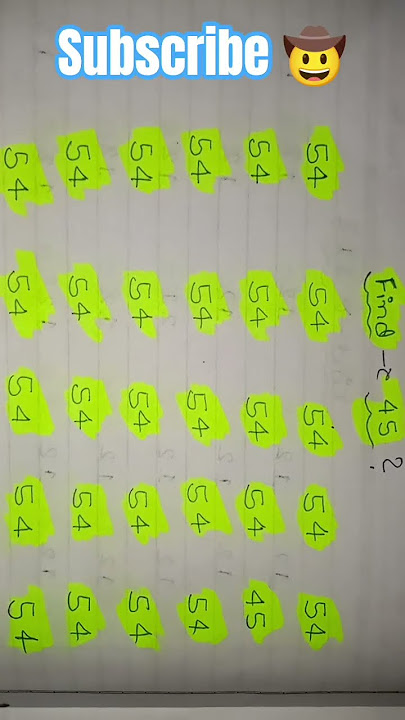 Subscribe 🤠
Find → 45 ?
54 54 54 54 54
54 54 54 54 45
54 54 54 54 54
54 54 54 54 54
54 54 54 54 54
54 54 54 54 54